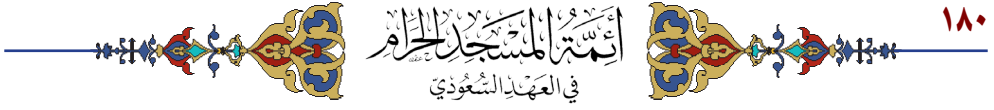 ١٨٠
أَئِمَّةُ المَسْجِدِ الحَرَامِ
في العَهْدِ السُّعُودِيّ